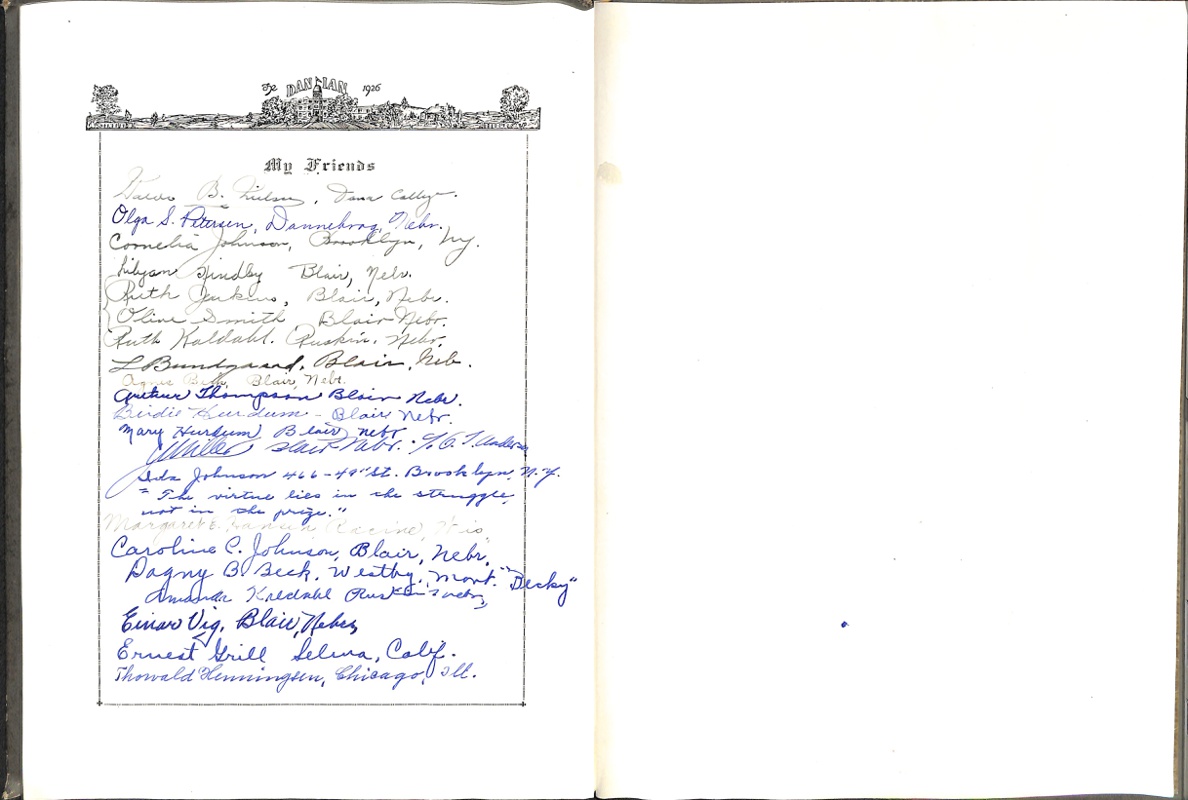 The DANIAN 1926
My Friends
B. Nielsen, Dana College.
Olga S. Petersen, Dannebrog, Nebr.
Cornelia Johnson, Brooklyn, Ny.
Lindby Blair, Nebr.
Ruth Jenkins, Blair, Nebr.
Oline Smith Blair Nebr.
Ruth Kaldahl. Ruskin. Nebr.
L Bundgaard, Blair, Neb.
Agnes Beck, Blair, Nebr.
Arthur Thompson Blair Nebr.
Birdie Hurdum - Blair Nebr.
Mary Hurdum Blair nebr
Miller Blair Nebr. % Andersen
Ida Johnson 466-49" St. Brooklyn, N.Y.
"The virtue lies in the struggle,
not in the prize."
Margaret E. Hansen Racine, Wis.
Caroline C. Johnson, Blair, Nebr.
Dagny B. Beck. Westby, Mont. "Becky"
Amanda Kaldahl Ruskin Nebr,
Einar Vig, Blair, Nebr,
Ernest Grill Selma, Calif.
Thorvald Henningsen, Chicago, Ill.